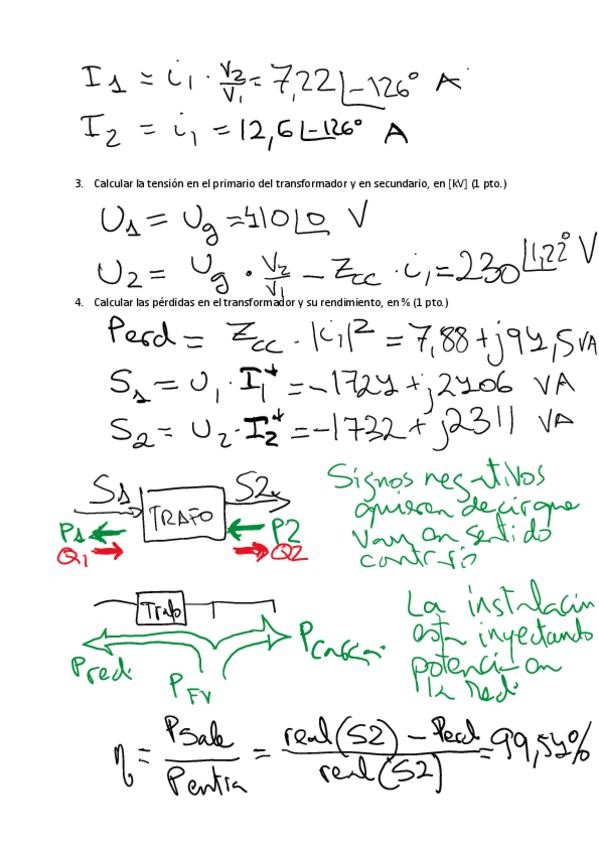 I1 = i1 · V2/V1 = 7,22 ∠-126° A
I2 = i1 = 12,6 ∠-126° A
3. Calcular la tensión en el primario del transformador y en secundario, en [kV] (1 pto.)
U1 = Ug = 410 ∠0 V
U2 = Ug · V2/V1 - Zcc · i1 = 230 ∠1,22° V
4. Calcular las pérdidas en el transformador y su rendimiento, en % (1 pto.)
Perd = Zcc · |i1|² = 7,88 + j94,5 VA
S1 = U1 · I1* = -1724 + j2406 VA
S2 = U2 · I2* = -1732 + j2311 VA
S1 TRAFO S2
P1 P2
Q1 Q2
Signos negativos
quieren decir que
van en sentido
contrario
Trafo
Pred PFV Pcarga
La instalación
está inyectando
potencia en
la red.
η = Psale/Pentra = (real(S2) - Perd)/real(S2) = 99,54%